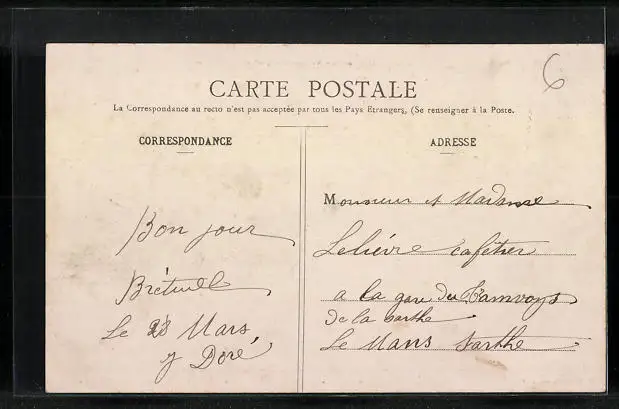 6
CARTE POSTALE
La Correspondance au recto n'est pas acceptée par tous les Pays Etrangers, (Se renseigner à la Poste.
CORRESPONDANCE
Bon jour
Le Mars
Doré
ADRESSE
Monsieur et Madame
Lelièvre cafétier
a la gare du Tamvays
de la Sarthe
Le Mans Sarthe